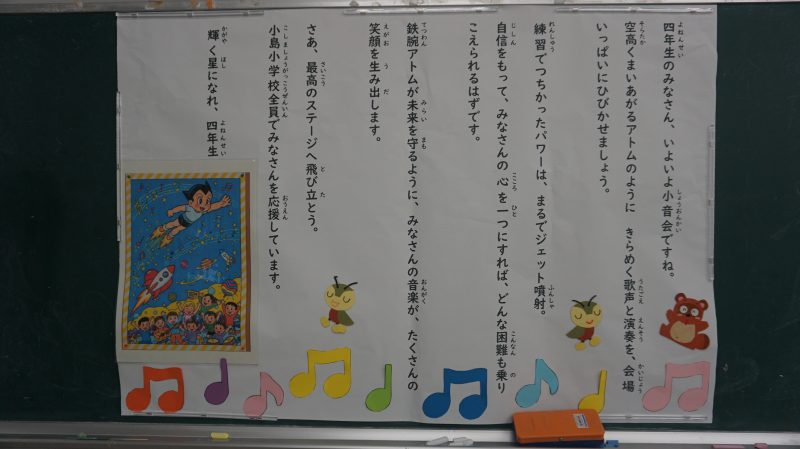 四年生のみなさん、いよいよ小音会ですね。
空高くまいあがるアトムのように　きらめく歌声と演奏を、会場
いっぱいにひびかせましょう。
練習でつちかったパワーは、まるでジェット噴射。
自信をもって、みなさんの心を一つにすれば、どんな困難も乗り
こえられるはずです。
鉄腕アトムが未来を守るように、みなさんの音楽が、たくさんの
笑顔を生み出します。
さあ、最高のステージへ飛び立とう。
小島小学校全員でみなさんを応援しています。
輝く星になれ、四年生